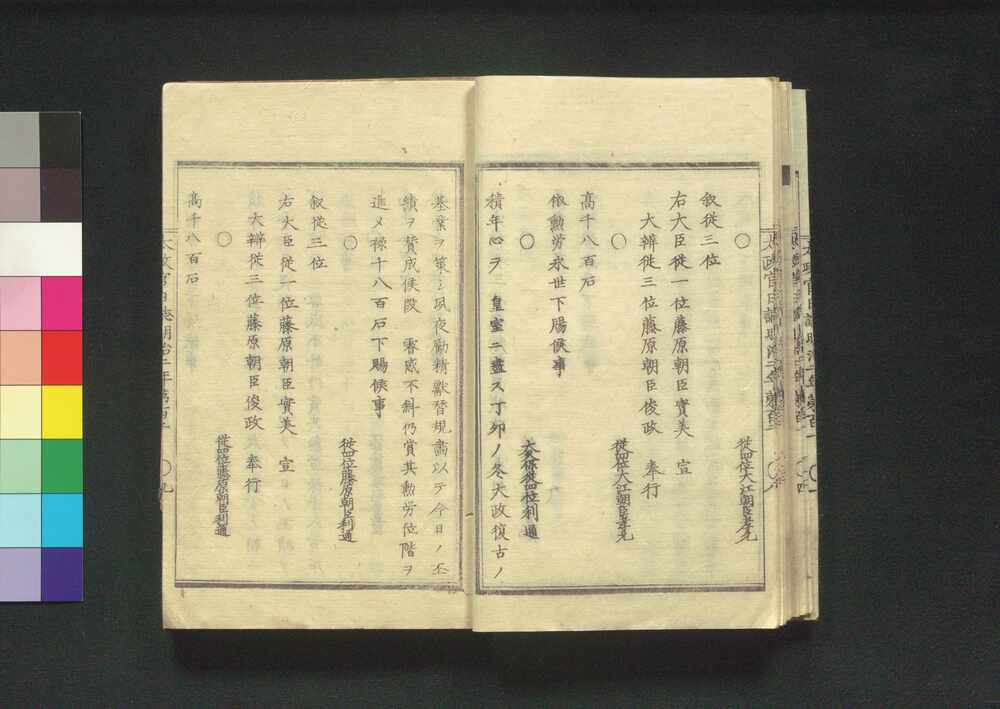 ○
從四位大江朝臣孝允
叙從三位
右大臣從一位藤原朝臣實美 宣
大辨從三位藤原朝臣俊政 奉行
○
從四位大江朝臣孝允
高千八百石
依勳勞永世下賜候事
○
大久保從四位利通
積年心ヲ 皇室ニ盡ス丁卯ノ冬大政復古ノ
基業ヲ策シ夙夜勵精獻替規畫以テ今日ノ丕
績ヲ賛成候段 睿感不斜仍賞其勳勞位階ヲ
進メ祿千八百石下賜候事
○
從四位藤原朝臣利通
叙從三位
右大臣從一位藤原朝臣實美 宣
大辨從三位藤原朝臣俊政 奉行
○
從四位藤原朝臣利通
高千八百石
太政官日誌明治二年第百